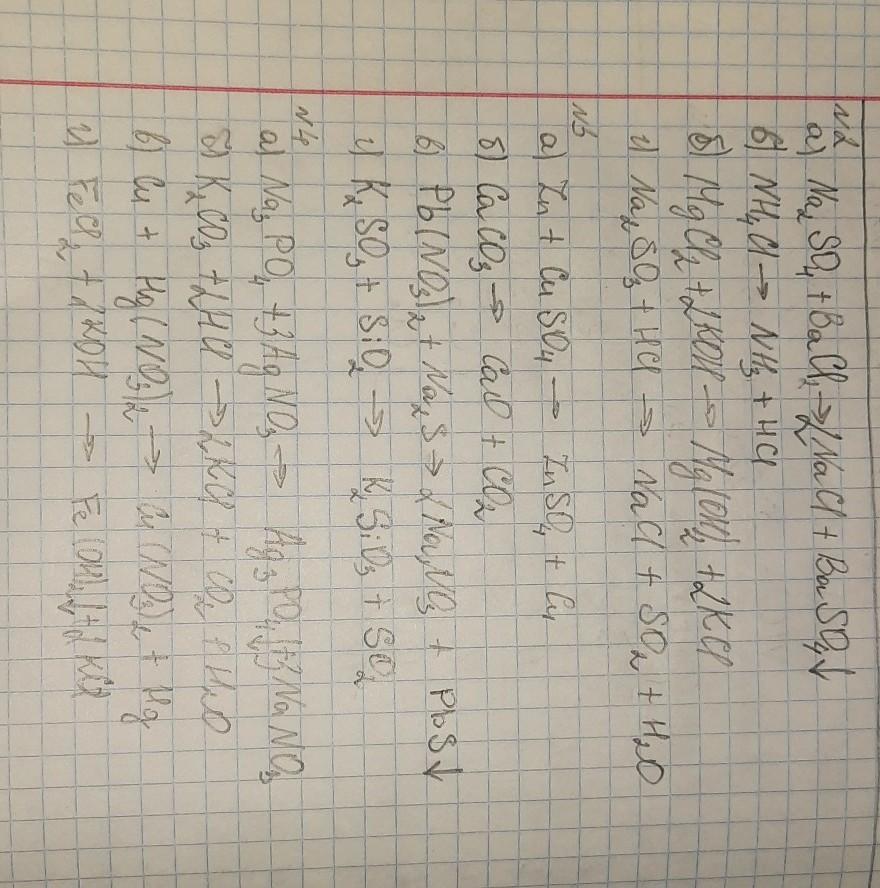 N2
а) Na₂SO₄ + BaCl₂ → 2NaCl + BaSO₄↓
в) NH₄Cl → NH₃ + HCl
б) MgCl₂ + 2KOH → Mg(OH)₂ + 2KCl
г) Na₂SO₃ + HCl → NaCl + SO₂ + H₂O
N3
а) Zn + CuSO₄ → ZnSO₄ + Cu
б) CaCO₃ → CaO + CO₂
в) Pb(NO₃)₂ + Na₂S → 2NaNO₃ + PbS↓
г) K₂SO₃ + SiO₂ → K₂SiO₃ + SO₂
N4
а) Na₃PO₄ + 3AgNO₃ → Ag₃PO₄↓ + 3NaNO₃
б) K₂CO₃ + 2HCl → 2KCl + CO₂ + H₂O
в) Cu + Hg(NO₃)₂ → Cu(NO₃)₂ + Hg
г) FeCl₂ + 2KOH → Fe(OH)₂↓ + 2KCl